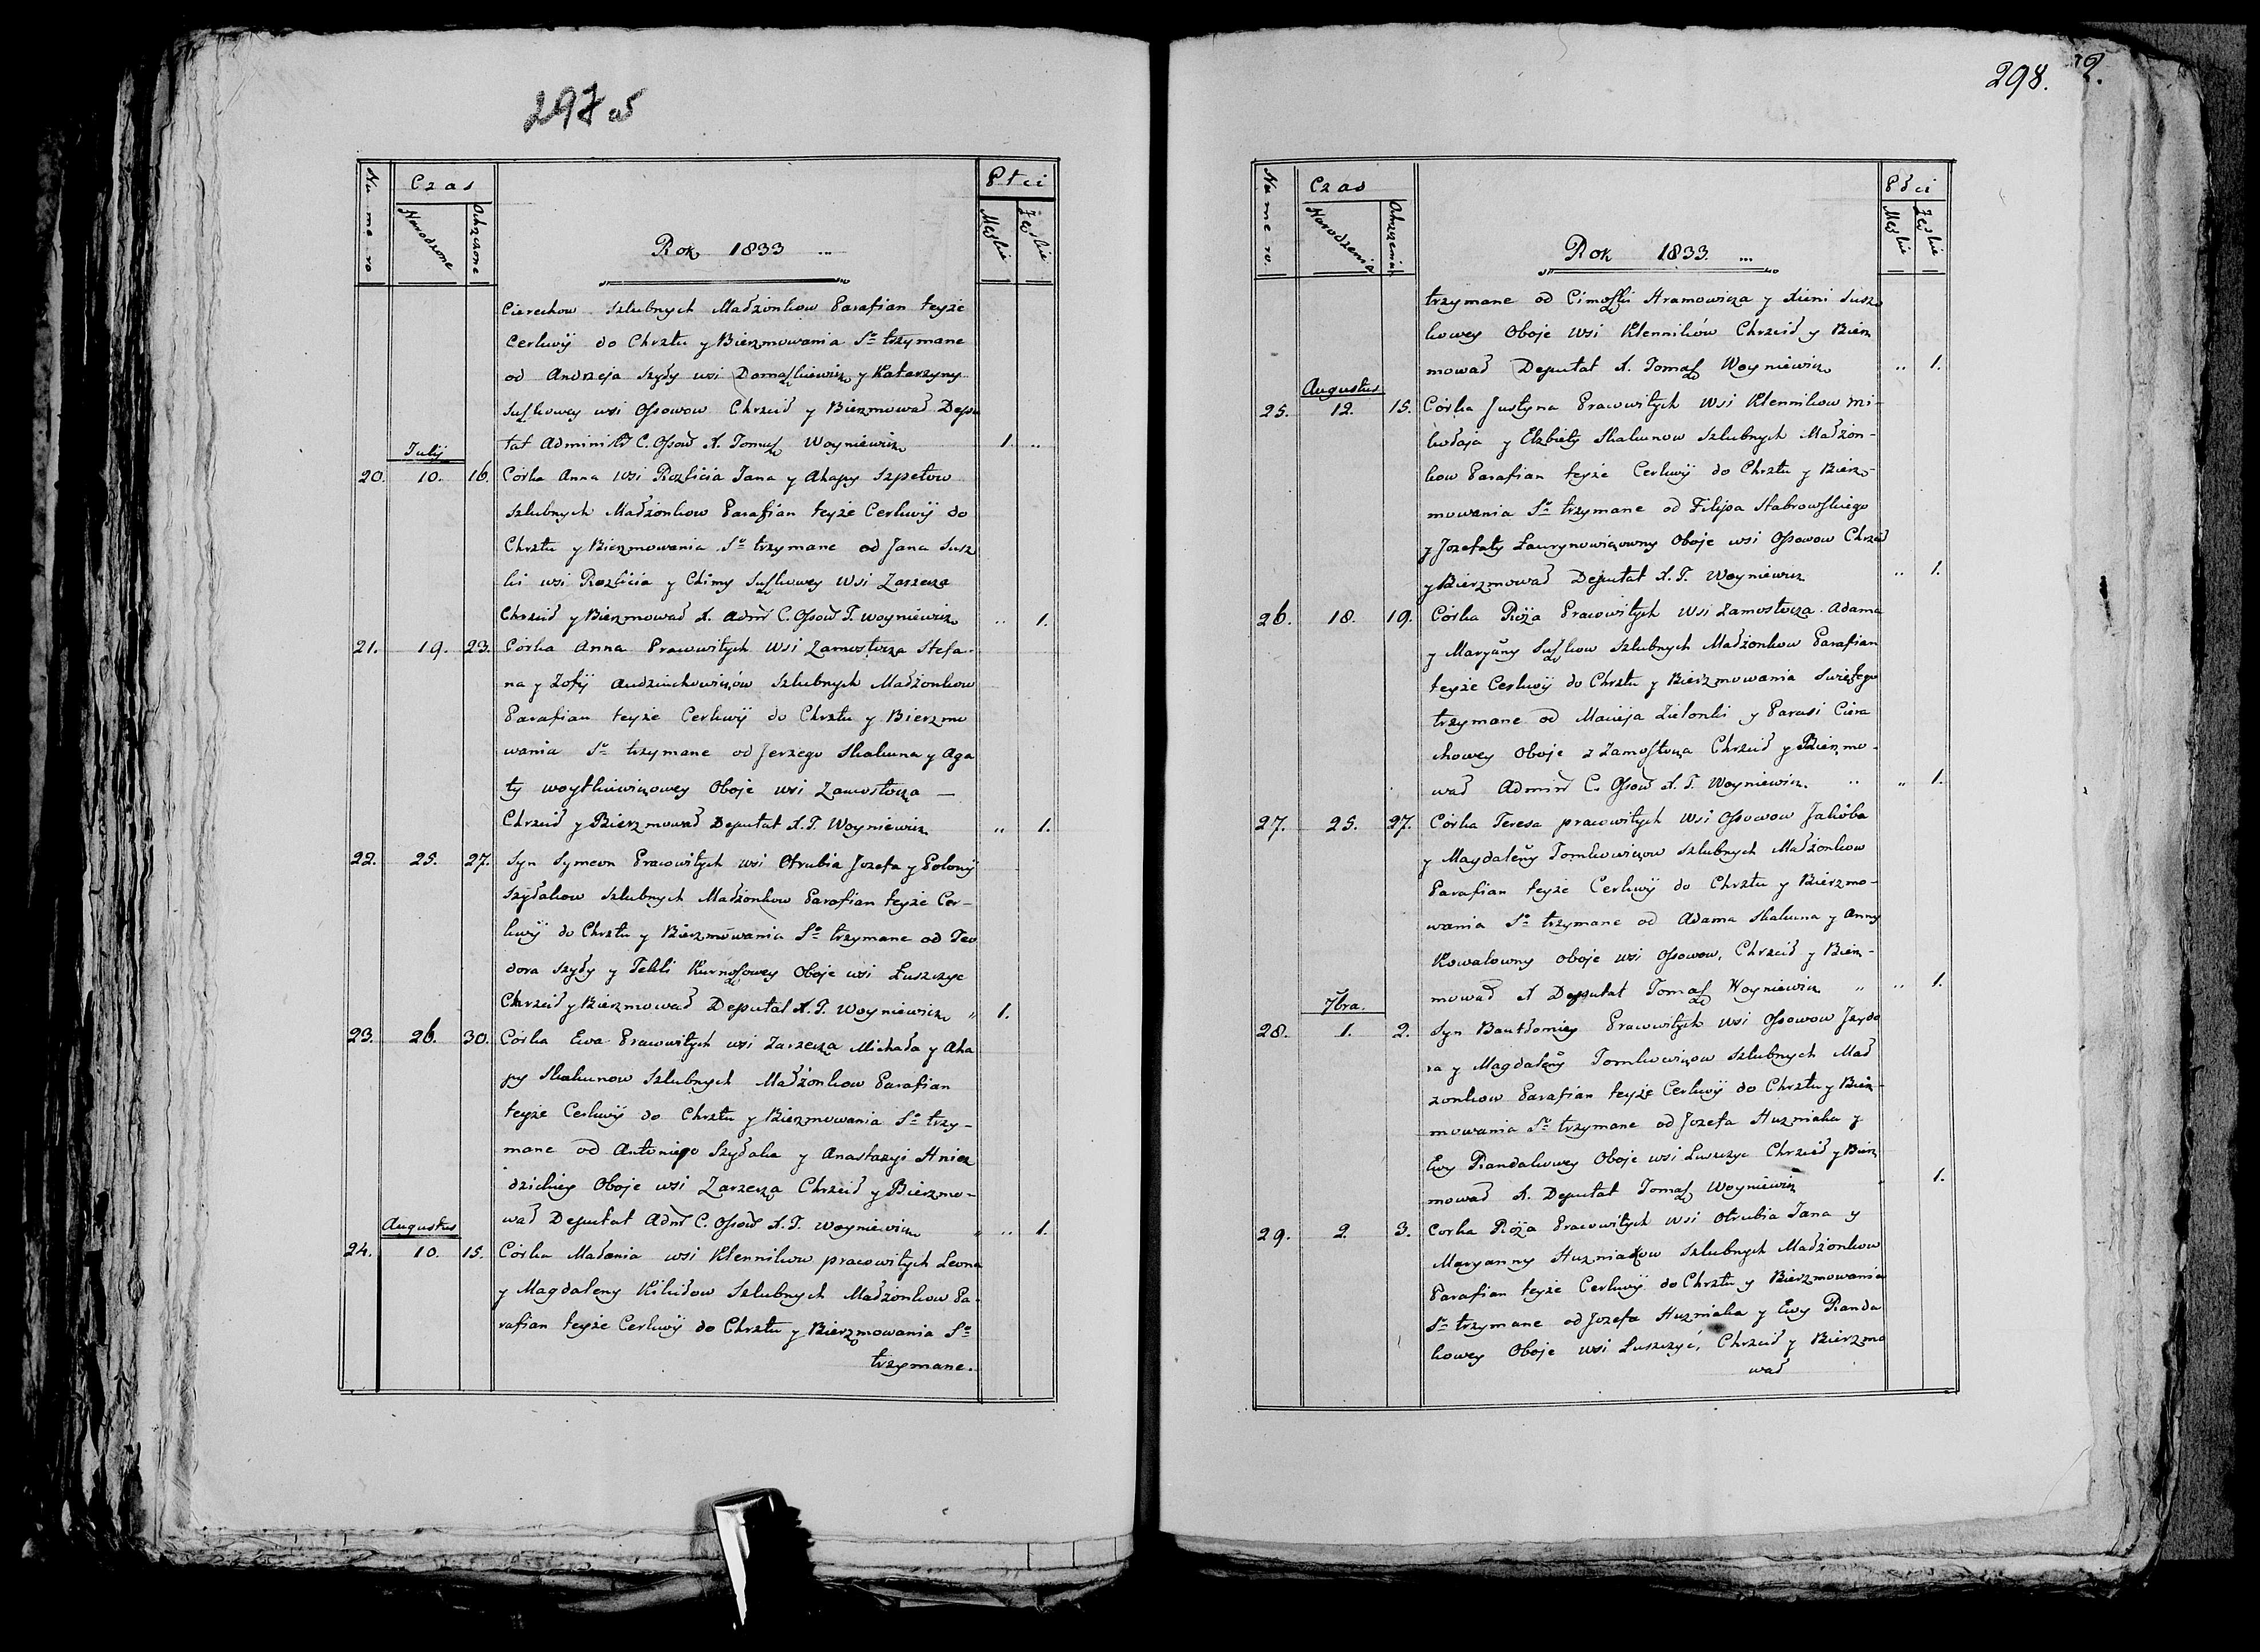 297 об
Numero
Czas
Narodzone
Ochrzczone
Rok 1833 ...
Płci
Męskie
Żeńskie
Cierechow Szlubnych Małżonkow Parafian teyże
Cerkwij do Chrztu y Bierzmowania Sº trzymane
od Andrzeja Szydy wsi Domaszkiewicz y Katarzyny
Suszkowey wsi Ossowow Chrzcił y Bierzmował Depu
tat Administr C. Ossow X. Tomasz Woyniewicz 1. ..
Julij
20. 10. 16. Córka Anna wsi Rozlicia Jana y Ahapy Szpetow
Szlubnych Małżonkow Parafian teyże Cerkwij do
Chrztu y Bierzmowania Sº trzymane od Jana Susz
ki wsi Rozlicia y Chimy Suszkowey wsi Zarzecza
Chrzcił y Bierzmował X. Adm C. Ossow T. Woyniewicz .. 1.
21. 19. 23. Córka Anna Pracowitych wsi Zamostocza Stefa-
na y Zofij Audziuchowiczów Szlubnych Małżonkow
Parafian teyże Cerkwij do Chrztu y Bierzmo
wania Sº trzymane od Jerzego Skakuna y Aga
ty Woytkiewiczowey Oboje wsi Zamostocza —
Chrzcił y Bierzmował Deputat X. T. Woyniewicz „ 1.
22. 25. 27. Syn Symeon Pracowitych wsi Otrubia Jozefa y Polonij
Szydłakow Szlubnych Małżonkow Parafian teyże Cer-
kwij do Chrztu y Bierzmówania Sº trzymane od Teo
dora Szydy y Tekli Kurnoszowey Oboje wsi Łuszczyc
Chrzcił y Bierzmował Deputat X. T. Woyniewicz „ 1.
23. 26. 30. Córka Ewa Pracowitych wsi Zarzecza Michała y Aha
py Skakunow Szlubnych Małżonkow Parafian
teyże Cerkwij do Chrztu y Bierzmowania Sº trzy-
mane od Antoniego Szydłaka y Anastazyi Hniez
dzickiey Oboje wsi Zarzecza Chrzcił y Bierzmo-
wał Deputat Adm C. Ossow X. T. Woyniewicz „ .. 1.
Augustus
24. 10. 15. Córka Małania wsi Klennikow pracowitych Leona
y Magdaleny Szlubnych Małżonkow Pa-
rafian teyże Cerkwij do Chrztu y Bierzmowania Sº
trzymane.
298. 2.
Numero.
Czas
Narodzenia
Ochrzczenia
Rok 1833. ...
Płci
Męskie
Żeńskie
trzymane od Cimoszki Hramowicza y Xieni Susz
kowey Oboje wsi Klenników Chrzcił y Bierz
mował Deputat X. Tomasz Woyniewicz .. 1.
Augustus
25. 12. 15. Córka Justyna Pracowitych wsi Klennikow Mi-
kołaja y Elzbiety Skakunow Szlubnych Małżon-
kow Parafian teyże Cerkwij do Chrztu y Bierz-
mowania Sº trzymane od Filipa Stabrowskiego
y Jozefaty Ławrynowiczowny Oboje wsi Ossowow Chrzcił
y Bierzmował Deputat X. T. Woyniewicz .. 1.
26. 18. 19. Córka Róża Pracowitych wsi Zamostocza Adama
y Maryany Suszkow Szlubnych Małżonkow Parafian
teyże Cerkwij do Chrztu y Bierzmowania Swiętego
trzymane od Macieja Zielonki y Parasi Ciera
chowey Oboje z Zamostocza Chrzcił y Bierzmo-
wał Admin C. Ossow X. T. Woyniewicz. .. „ 1.
27. 25. 27. Córka Teresa pracowitych wsi Ossowow Jakóba
y Magdaleny Tomkowiczow Szlubnych Małżonkow
Parafian teyże Cerkwij do Chrztu y Bierzmo-
wania Sº trzymane od Adama Skakuna y Anny
Kowalowny oboje wsi Ossowow, Chrzcił y Bierz-
mował X Deputat Tomasz Woyniewicz „ .. 1.
7bra.
28. 1. 2. Syn Bautłomiey Pracowitych wsi Ossowow Jzydo
ra y Magdaleny Tomkowiczow Szlubnych Mał
zonkow Parafian teyże Cerkwij do Chrztu y Bierz-
mowania Sº trzymane od Jozefa Huzniaka y
Ewy Randakowey Oboje wsi Łuszczyc Chrzcił y Bierz
mował X. Deputat Tomasz Woyniewicz 1.
29. 2. 3. Corka Róża Pracowitych wsi Otrubia Jana y
Maryanny Huzniakow Szlubnych Małżonkow
Parafian teyże Cerkwij do Chrztu y Bierzmowania
Sº trzymane od Jozefa Huzniaka y Ewy Randa
kowey Oboje wsi Łuszczyć, Chrzcił y Bierzmo
wał